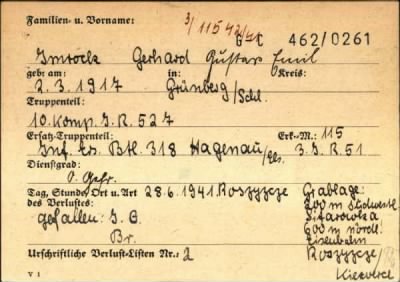 Familien- u. Vorname: 3/115 42/41
G-C 462/0261
Imrock Gerhard Gustav Emil
geb: am: in: Kreis:
2.3.1917 Grünberg/Schl.
Truppenteil:
10. Komp. I.R. 527
Ersatz-Truppenteil: Erk.-M.: 115
Inf. Ers. Btl. 318 Hagenau/Els. 3. I.R. 51
Dienstgrad:
O. Gefr.
Tag, Stunde, Ort u. Art 28.6.1941 Roszyzcze Grablage:
des Verlustes: 200 m südwestl.
gefallen: I. G. Sitarowka
Br. 600 m nördl.
Eisenbahn
Urschriftliche Verlust-Listen Nr.: 2 Roszyzcze/
V 1